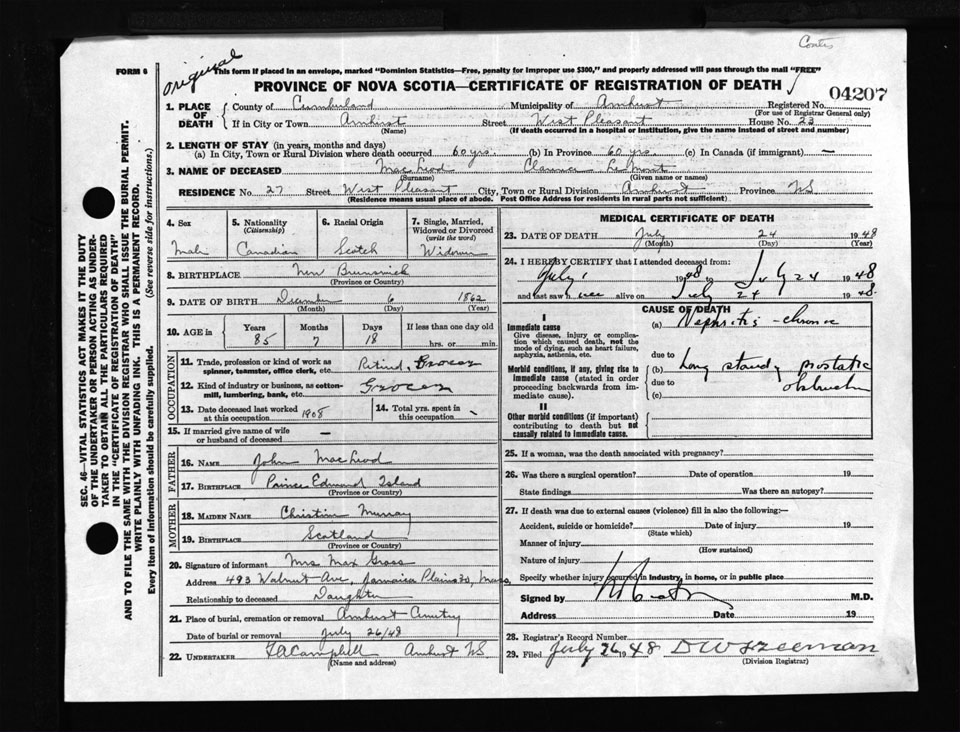 Contes
FORM 6
original
This form if placed in an envelope, marked "Dominion Statistics—Free, penalty for improper use $300," and properly addressed will pass through the mail "FREE"
PROVINCE OF NOVA SCOTIA—CERTIFICATE OF REGISTRATION OF DEATH
04207
1. PLACE OF DEATH County of Cumberland Municipality of Amherst Registered No.
(For use of Registrar General only)
If in City or Town Amherst Street West Pleasant House No. 23
(Name) (If death occurred in a hospital or institution, give the name instead of street and number)
2. LENGTH OF STAY (in years, months and days)
(a) In City, Town or Rural Division where death occurred 60 yrs. (b) In Province 60 yrs. (c) In Canada (if immigrant) —
3. NAME OF DECEASED MacLeod Clarence
(Surname) (Given name or names)
RESIDENCE No. 27 Street West Pleasant City, Town or Rural Division Amherst Province NS
(Residence means usual place of abode. Post Office Address for residents in rural parts not sufficient)
4. Sex 5. Nationality 6. Racial Origin 7. Single, Married,
(Citizenship) Widowed or Divorced
(write the word)
Male Canadian Scotch Widower
8. BIRTHPLACE New Brunswick
(Province or Country)
9. DATE OF BIRTH December 6 1862
(Month) (Day) (Year)
10. AGE in Years Months Days If less than one day old
85 7 18 hrs. or min.
OCCUPATION
11. Trade, profession or kind of work as spinner, teamster, office clerk, etc. Retired, Grocer
12. Kind of industry or business, as cotton-mill, lumbering, bank, etc. Grocer
13. Date deceased last worked at this occupation 1908 14. Total yrs. spent in this occupation
15. If married give name of wife or husband of deceased —
FATHER
16. NAME John MacLeod
17. BIRTHPLACE Prince Edward Island
(Province or Country)
MOTHER
18. MAIDEN NAME Christina Murray
19. BIRTHPLACE Scotland
(Province or Country)
20. Signature of informant Mrs. Max Gross
Address 493 Walnut Ave, Jamaica Plains 30, Mass,
Relationship to deceased Daughter
21. Place of burial, cremation or removal Amherst Cemetry
Date of burial or removal July 26/48
22. UNDERTAKER Campbell Amherst NS
(Name and address)
MEDICAL CERTIFICATE OF DEATH
23. DATE OF DEATH July 24 1948
(Month) (Day) (Year)
24. I HEREBY CERTIFY that I attended deceased from:
July 1 1948 to July 24 1948
and last saw him alive on July 24 1948.
CAUSE OF DEATH
I
Immediate cause
Give disease, injury or complication which caused death, not the mode of dying, such as heart failure, asphyxia, asthenia, etc.
(a) Nephritis - chronic
due to
Morbid conditions, if any, giving rise to immediate cause (stated in order proceeding backwards from immediate cause).
(b) Long standing prostatic
due to obstruction
(c)
II
Other morbid conditions (if important) contributing to death but not causally related to immediate cause.
25. If a woman, was the death associated with pregnancy?
26. Was there a surgical operation? Date of operation 19
State findings Was there an autopsy?
27. If death was due to external causes (violence) fill in also the following:—
Accident, suicide or homicide? Date of injury 19
(State which)
Manner of injury
(How sustained)
Nature of injury
Specify whether injury occurred in industry, in home, or in public place
Signed by M.D.
Address Date 19
28. Registrar's Record Number
29. Filed July 26 1948 DW Freeman
(Division Registrar)
SEC. 46—VITAL STATISTICS ACT MAKES IT THE DUTY
OF THE UNDERTAKER OR PERSON ACTING AS UNDER-
TAKER TO OBTAIN ALL THE PARTICULARS REQUIRED
IN THE "CERTIFICATE OF REGISTRATION OF DEATH"
AND TO FILE THE SAME WITH THE DIVISION REGISTRAR WHO SHALL ISSUE THE BURIAL PERMIT.
WRITE PLAINLY WITH UNFADING INK. THIS IS A PERMANENT RECORD.
Every item of information should be carefully supplied. (See reverse side for instructions.)